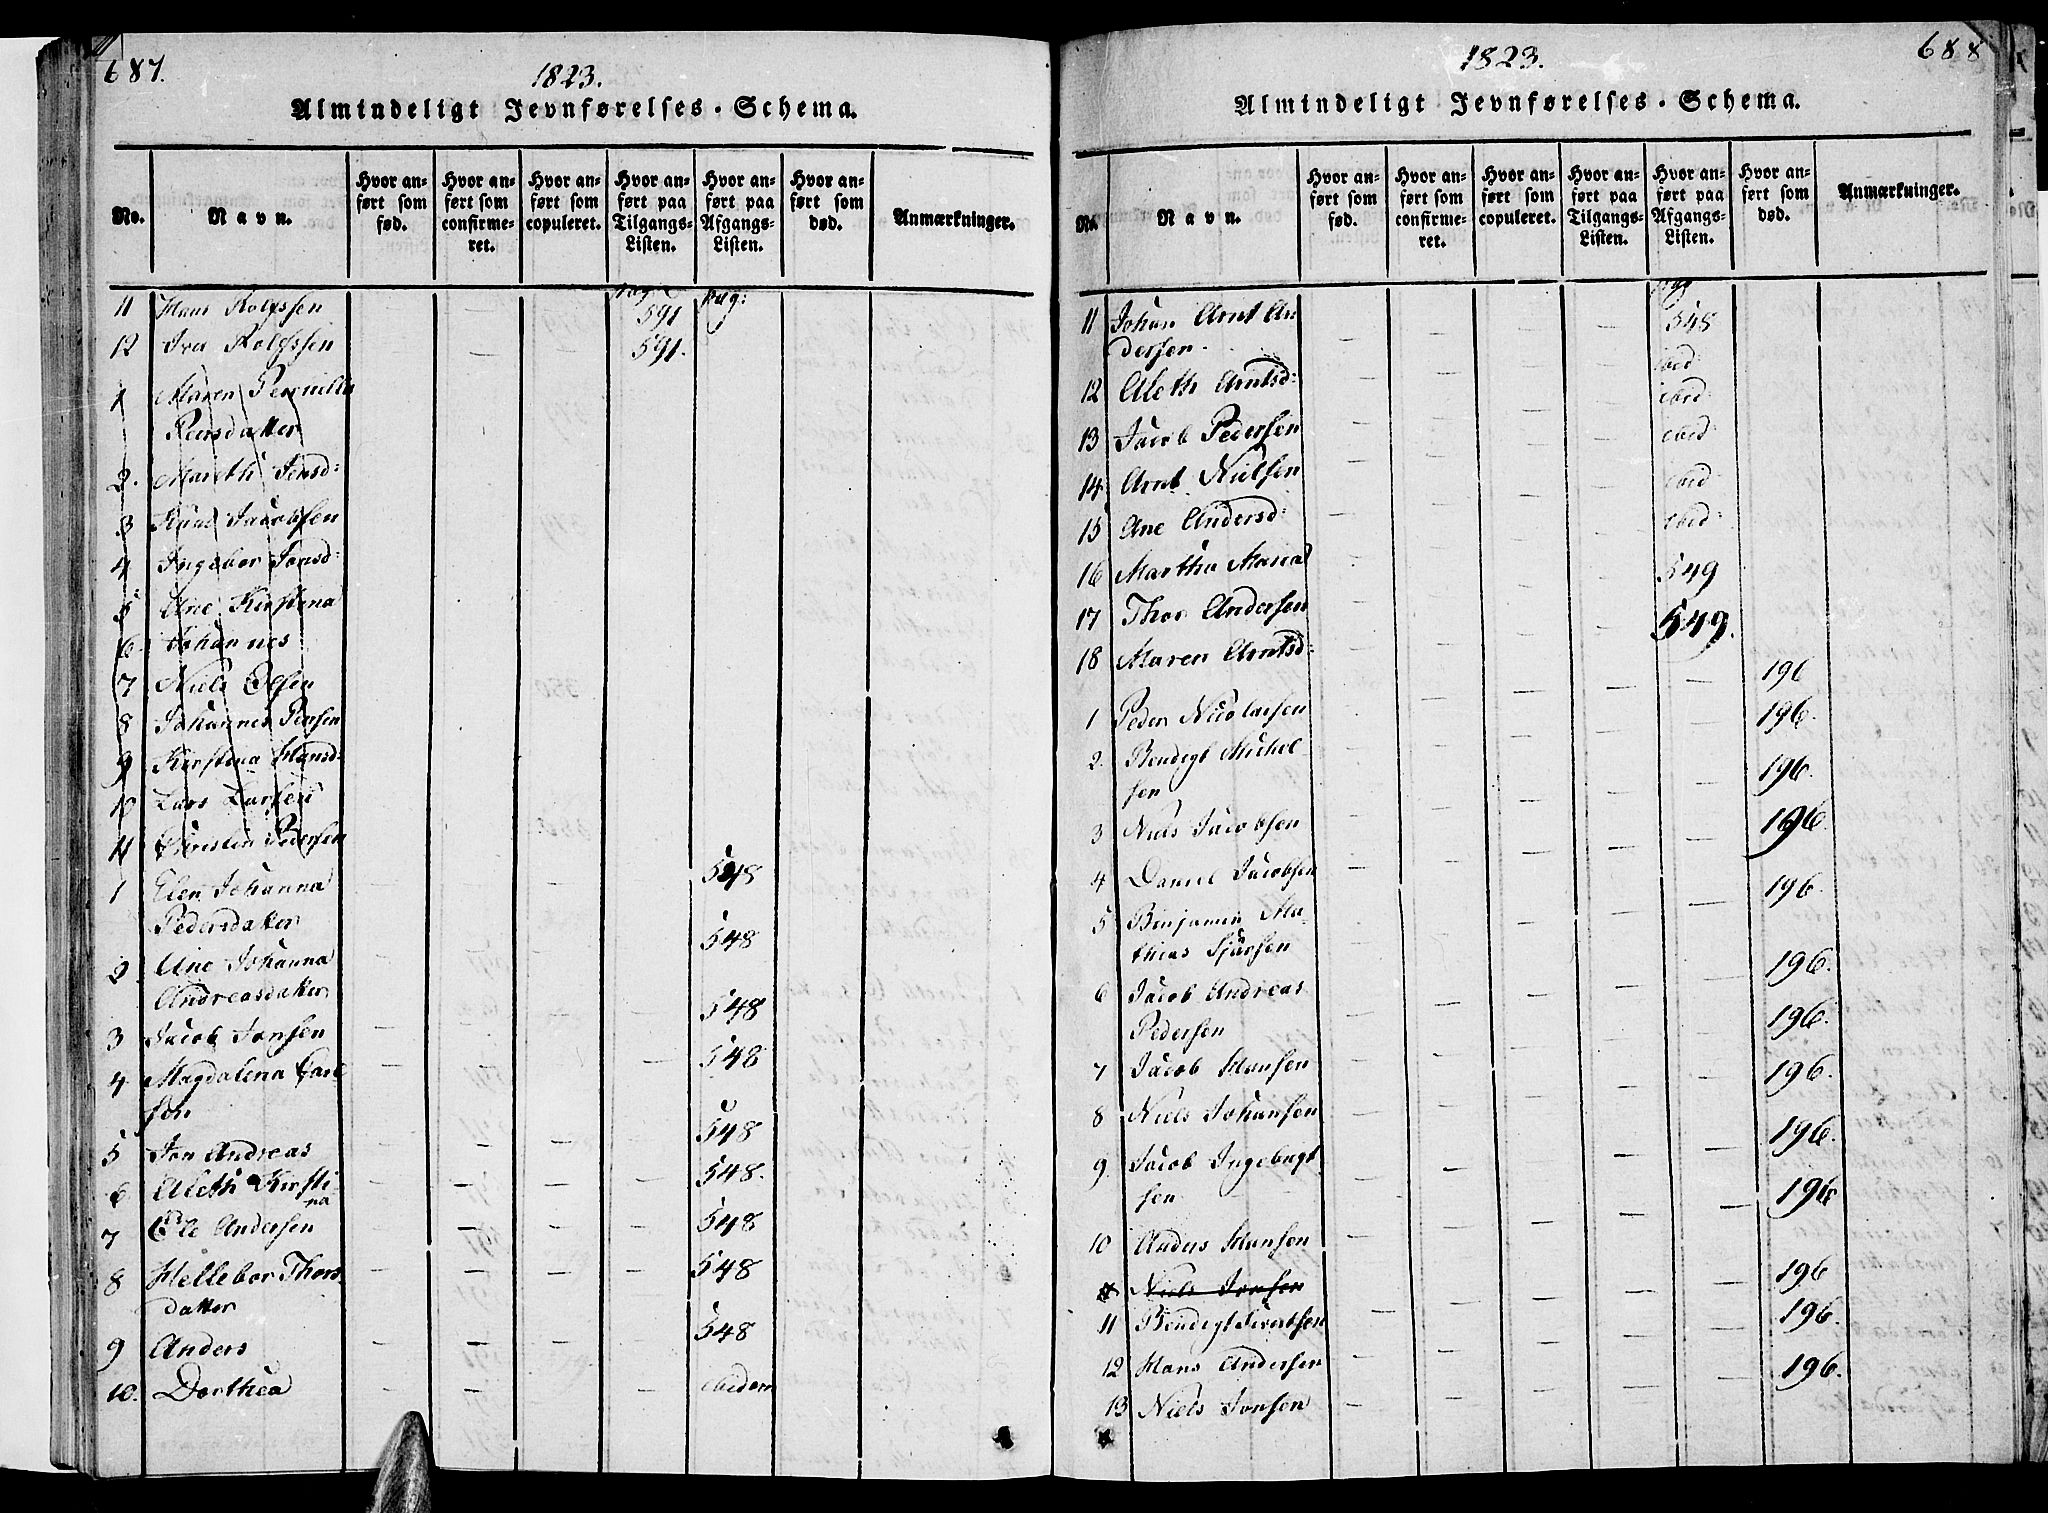 687.
1823.
Almindeligt Jevnførelses-Schema.
No.
Navn.
Hvor anført som fød.
Hvor anført som confirmeret.
Hvor anført som copuleret.
Hvor anført paa Tilgangs-Listen.
Hvor anført paa Afgangs-Listen.
Hvor anført som død.
Anmærkninger.
pag: pag:
11 Hans Rolfssen 591
12 Iver Rolfssen — — 591.
1 Maren Pernille
Pensdatter
2. Mareth Jensd:
3 Jacobsen
4 Ingebor Jonsd:
5 Ane Kirstina
6. Johannes
7 Niels Olsen
8 Johannes Pensen
9 Kirstina Hansd:
10 Lars Larsen
11 Christen Pedersen
1 Elen Johanna — — — — 548
Pedersdatter
2. Ane Johanna — — — — 548
Andreasdatter
3 Jacob Jonsen — — — — 548
4 Magdalena Carl — — — — 548
sen
5 Jon Andreas — — — — 548
6 Aleth Kirsti- — — — — 548.
na
7 Ole Andersen — — — — 548
8 Hellebor Thors- — — — — 548
datter
9 Anders — — — — 548
10. Dorthea — — — — ibidem
688
1823.
Almindeligt Jevnførelses-Schema.
No.
Navn.
Hvor anført som fød.
Hvor anført som confirmeret.
Hvor anført som copuleret.
Hvor anført paa Tilgangs-Listen.
Hvor anført paa Afgangs-Listen.
Hvor anført som død.
Anmærkninger.
pag
11 Johan Arnt An — — — — 548
dersen. ibid
12 Aleth Arntsd: — — — — ibid:
13 Jacob Pedersen — — — — ibid:
14. Arnt Nielsen — — — — ibid:
15 Ane Andersd: — — — — ibid:
16 Martha Maria — — — — 549
17 Thor Andersen — — — — 549.
18 Maren Arntsd:
1 Peder Nicolaisen — — — — — 196
2. Bendigt Michel- — — — — — 196.
sen
3 Niels Jacobsen — — — — — 196.
4 Daniel Jacobsen — — — — — 196.
5 Benjamin Ma- — — — — — 196.
thias Sjursen
6 Jacob Andreas — — — — — 196.
Pedersen
7 Jacob Hansen — — — — — 196.
8 Niels Johansen — — — — — 196.
9. Jacob Ingebrigt — — — — — 196.
sen
10 Anders Hansen — — — — — 196
Niels Jonsen
11 Bendigt Sivertsen — — — — — 196
12 Hans Andersen — — — — — 196.
13 Niels Jonsen — — — — — 196.